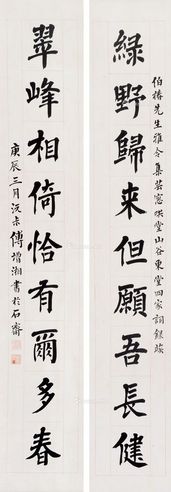 綠野歸来但願吾長健
伯椿先生雅令集茗窓洪堂山谷東堂四家詞録
翠峰相倚恰有爾多春
庚辰三月沅尗傅增湘書於石齋